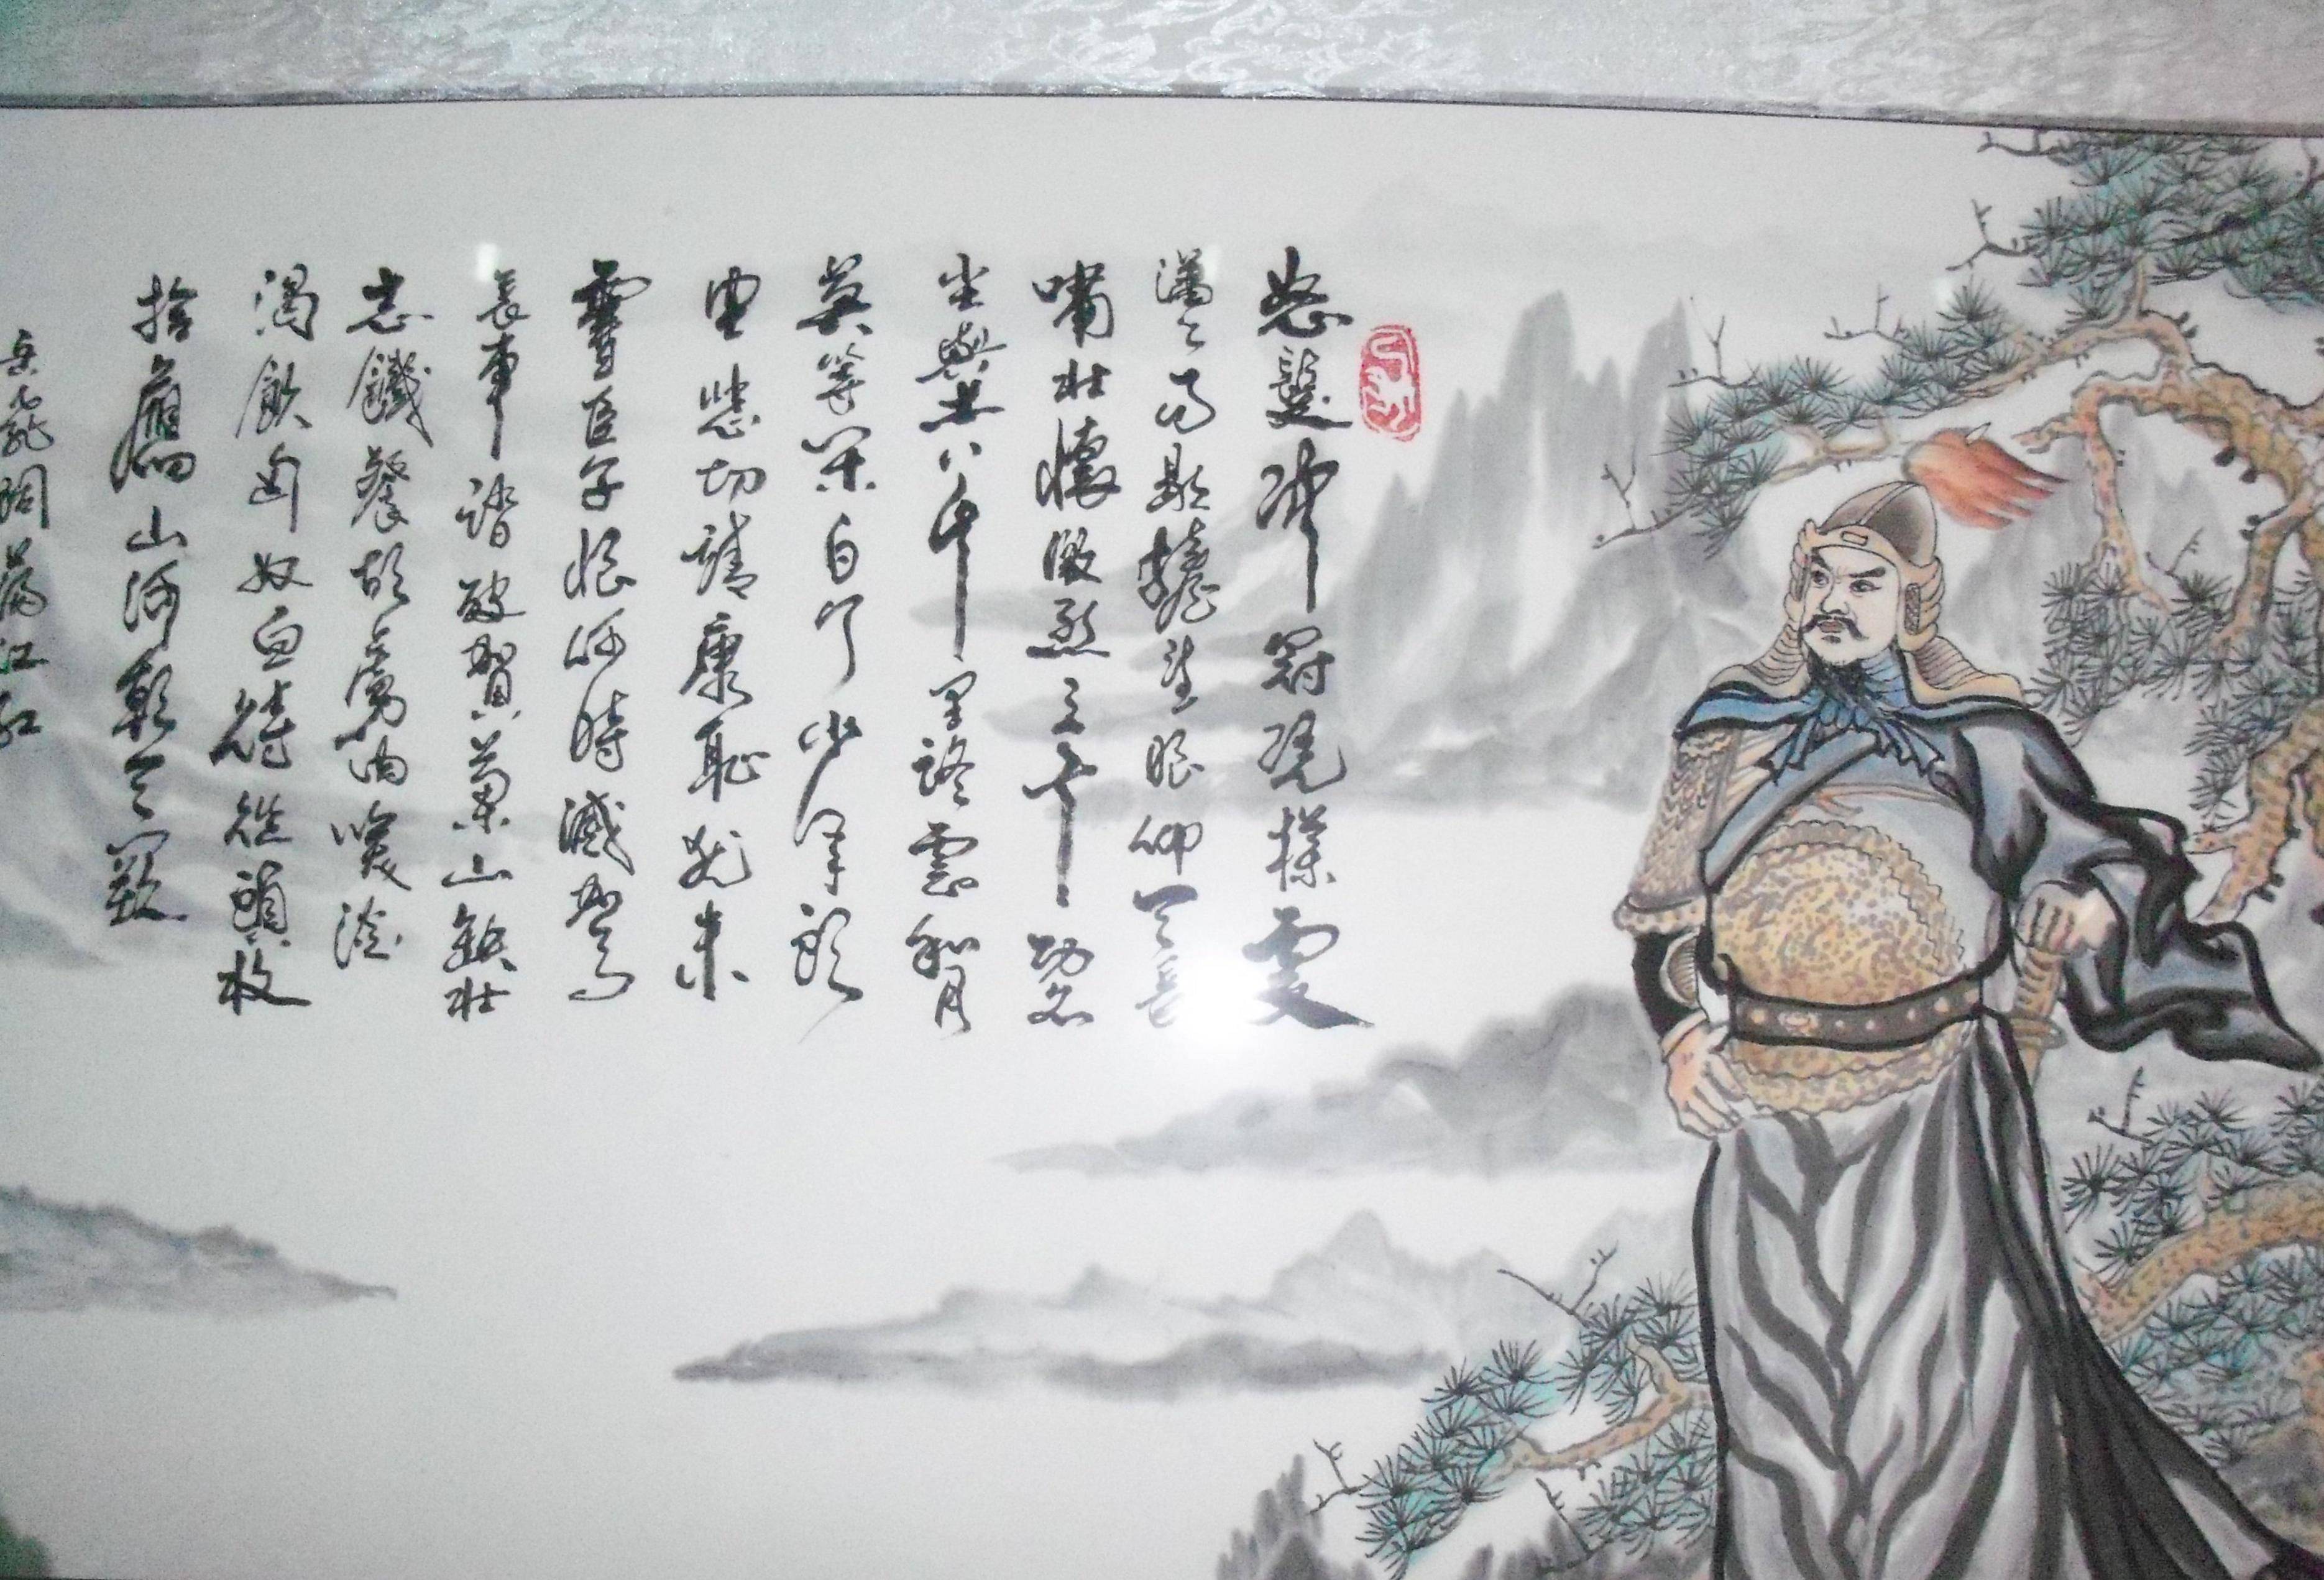 怒髮冲冠凴欄處
潇々雨歇擡望眼仰天長
嘯壯懷激烈三十功名
尘與土八千里路雲和月
莫等閑白了少年頭
空悲切靖康恥猶未
雪臣子恨何時滅駕
長車踏破賀蘭山缺壯
志饑餐胡虜肉笑談
渴飲匈奴血待從頭收
拾舊山河朝天闕
岳飛詞滿江紅